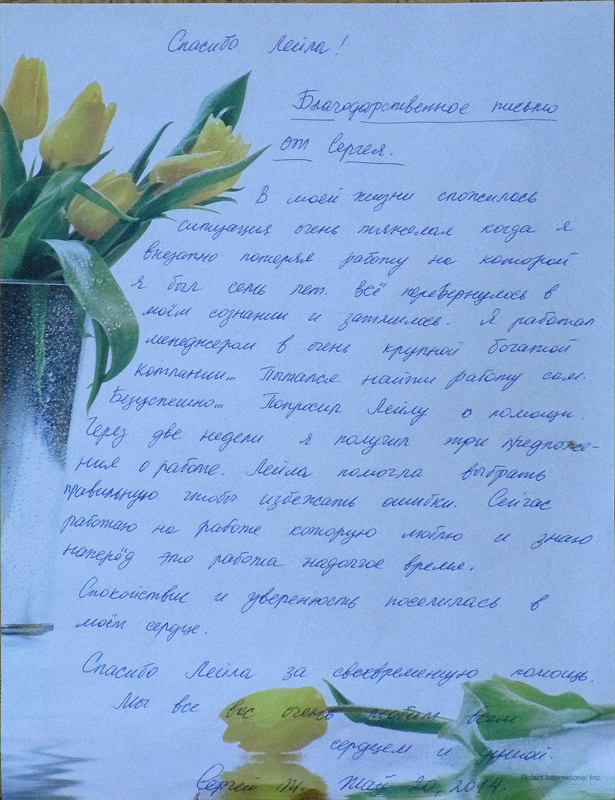 Спасибо Лейла!
Благодарственное письмо
от Сергея.
В моей жизни сложилась
ситуация очень тяжёлая когда я
внезапно потерял работу на которой
я был семь лет. Всё перевернулось в
моём сознании и затмилось. Я работал
менеджером в очень крупной богатой
компании... Пытался найти работу сам.
Безуспешно... Попросил Лейлу о помощи.
Через две недели я получил три предложе-
ния о работе. Лейла помогла выбрать
правильную чтобы избежать ошибки. Сейчас
работаю на работе которую люблю и знаю
наперёд это работа надолгое время.
Спокойствие и уверенность поселилась в
моём сердце.
Спасибо Лейла за своевременную помощь.
Мы все вас очень любим всем
сердцем и душой.
Сергей М. Май 20, 2014.
Rolact International Inc.